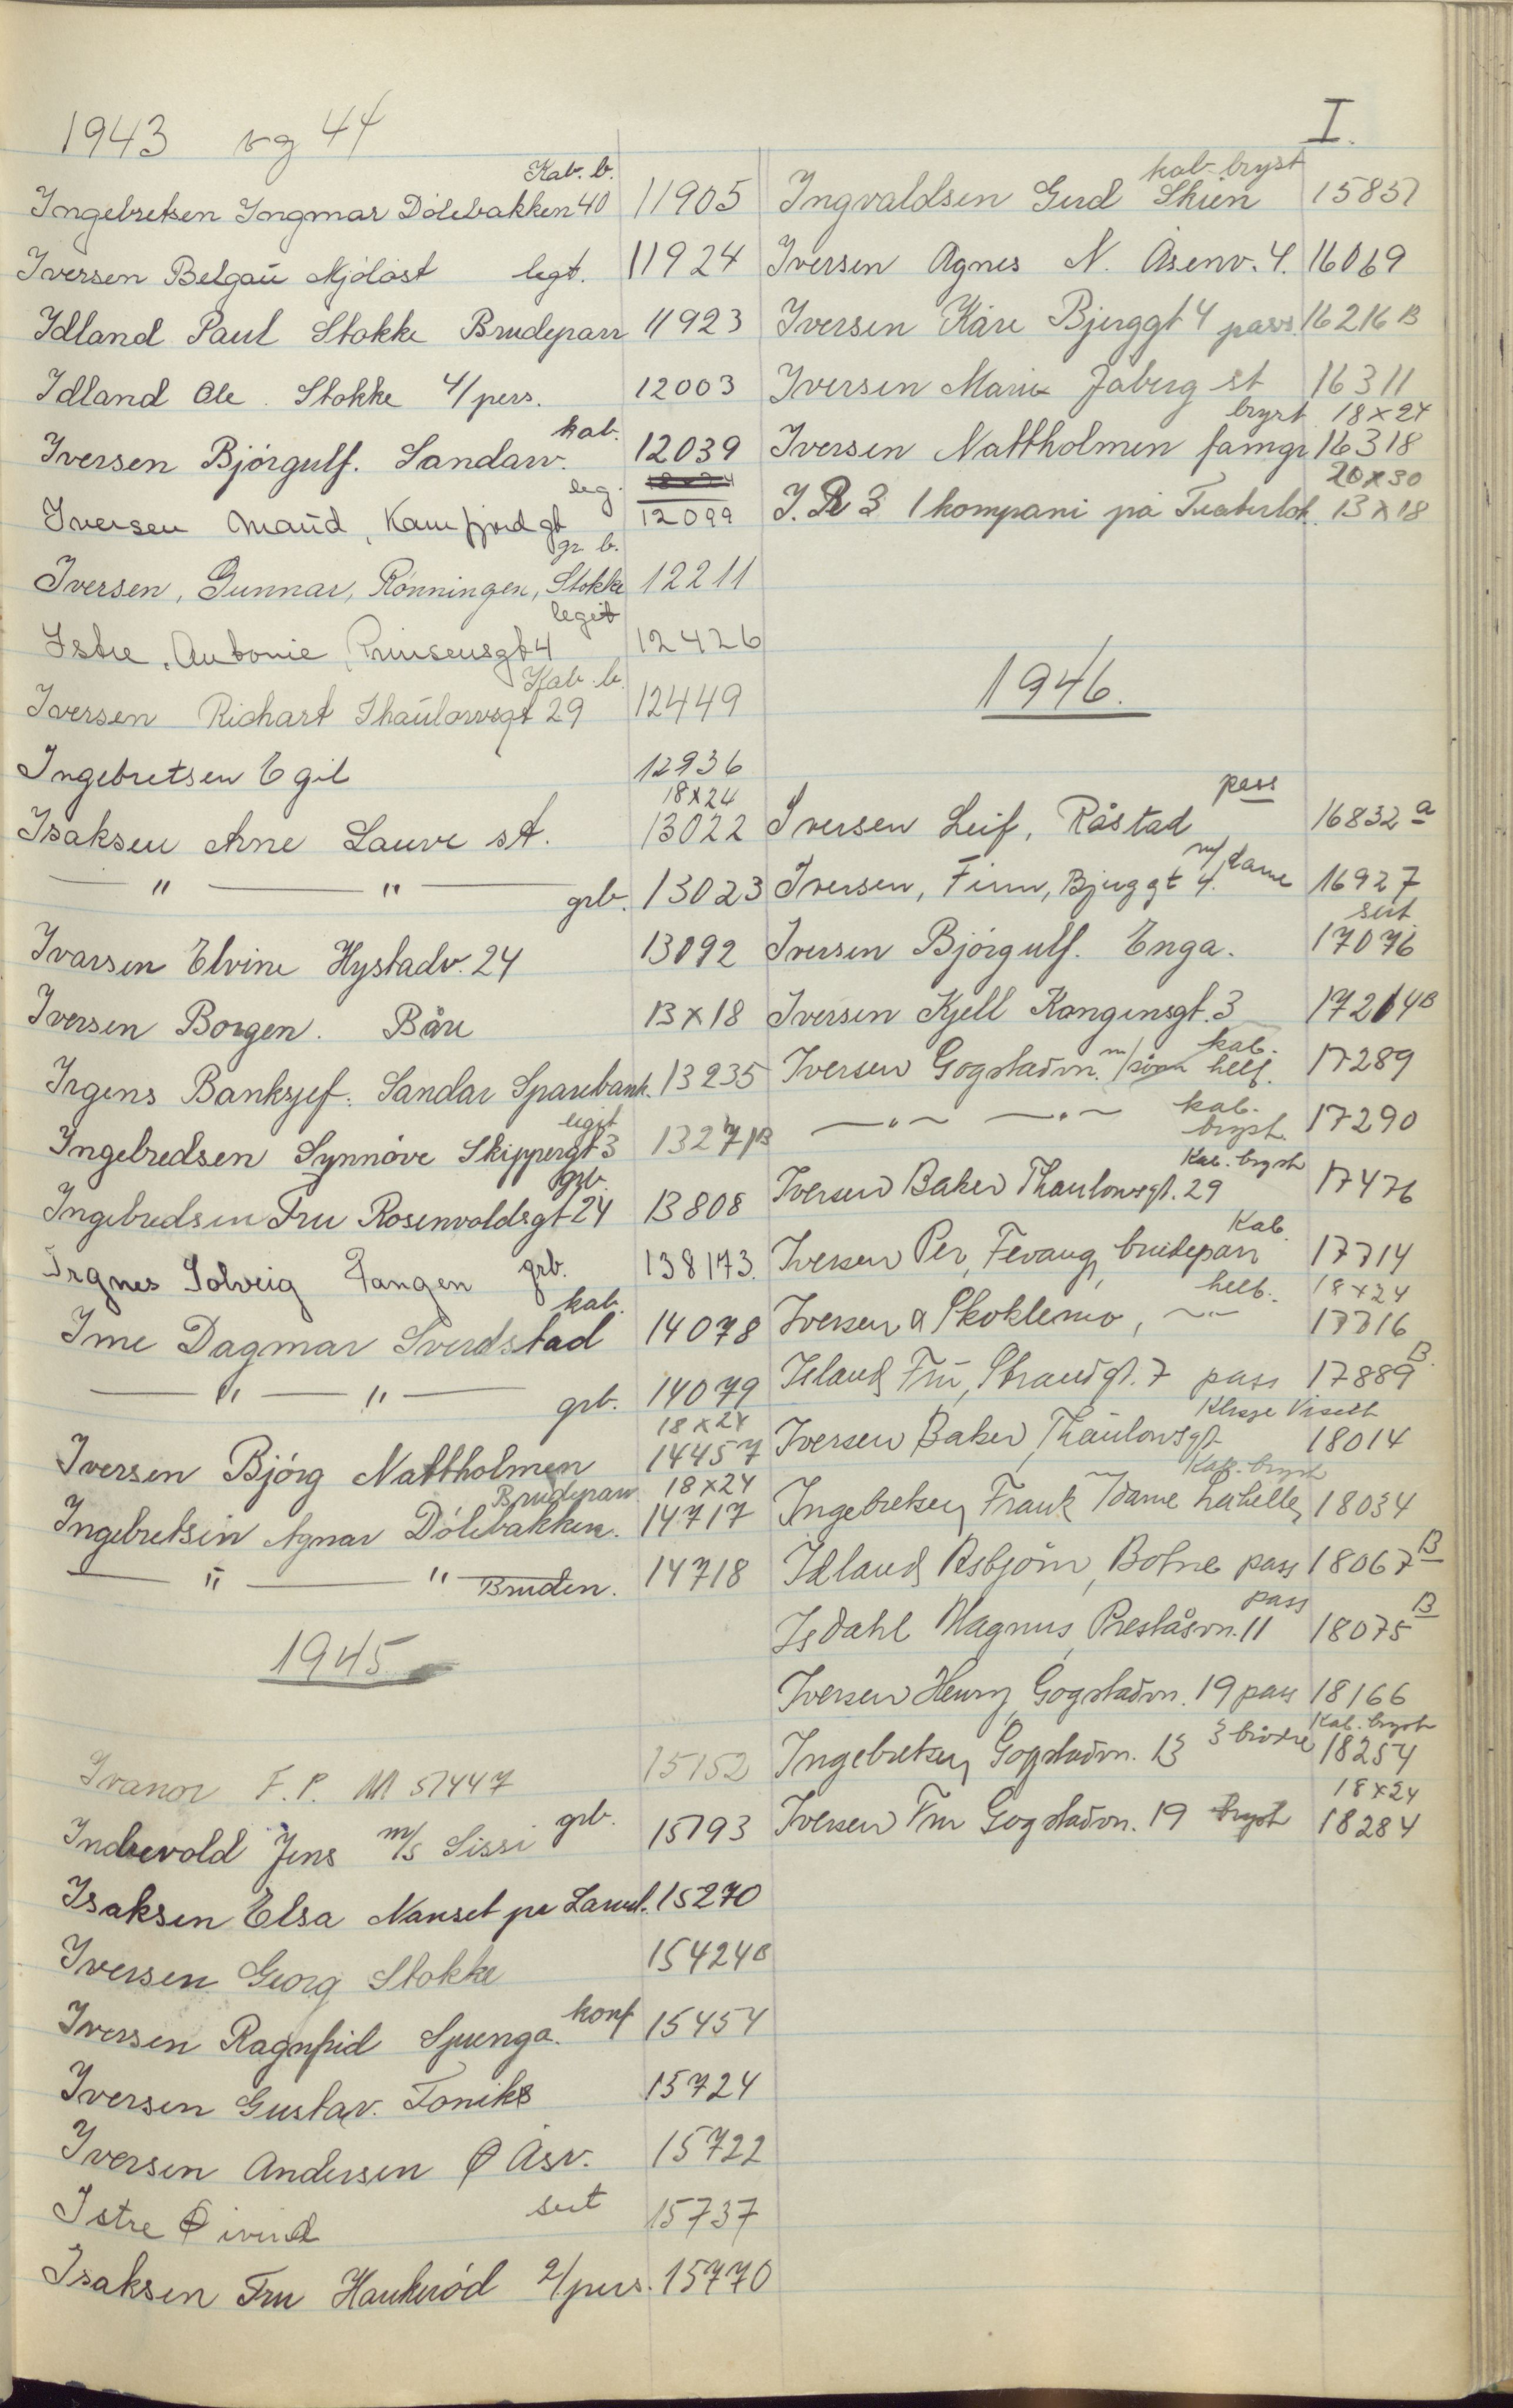 I.
1943 og 44
Kab. b.
Ingebretsen Ingmar Dölebakken 40 11905
Iversen Belgaŭ Mjölöst legt. 11924
Idland Paul Stokke Brudeparr 11923
Idland Ole. Stokke 4/pers. 12003
kab.
Iversen Bjórgulf. Sandarv. 12039
leg. 18x24
Iversen Maŭd, Kamfjordgt 12099
gr b.
Iversen, Gunnar, Rönningen, Stokke 12211
legit
Istre, Antonie, Prinsensgt 4 12426
Kab. b.
Iversen Richart Thaŭlowsgt 29 12449
Ingebretsen Egil 12936
18x24
Isaksen Arne Lauve st. 13022
— " — " — grb. 13023
Ivarsen Elvine Hystadv. 24 13092
Iversen Borgen. Båre 13x18
Irgens Banksjef. Sandar Sparebank. 13235
legit
Ingebredsen Synnöve Skippergt 3 13271B
grb.
Ingebredsen Fru Rosenvoldsgt 24 13808
Irgnes Solveig Tangen grb. 138173.
kab.
Ime Dagmar Sverdstad 14078
— " — " — grb. 14079
18x24
Iversen Bjórg Nattholmen 14457
Brudeparr 18x24
Ingebretsen Agnar Dölebakken. 14717
— " — " Bruden. 14718
1945
Ivanor F. P. M 51447 15152
Indrevold Jens m/s Sissi grb. 15193
Isaksen Elsa Nanset pr Larvik. 15270
Iversen Georg Stokke 15424B
Iversen Ragnfrid Spenga. konf 15454
Iversen Gustav. Toniks 15724
Iversen Andersen Ø Åsv. 15722
Istre Øivind seit 15737
Isaksen Fru Haukeröd 2/pers. 15770
kab-bryst
Ingvaldsen Gerd Skien 15851
Iversen Agnes N. Åsenv. 4. 16069
Iversen Kåre Bjerggt 4 pass. 16216B
Iversen Marie Jåberg st 16311
bryst 18x24
Iversen Nattholmen famgr 16318
20x30
I. R 3 1 kompani på 13x18
1946.
pass
Iversen Leif, Råstad 16832 a
m/dame
Iversen, Finn, Bjerggt 4. 16927
seit
Iversen Bjórgulf. Enga. 17076
Iversen Kjell Kongensgt. 3 17214B
kab.
Iversen Gogstadvn. m/sönn helf. 17289
— " — — " — kab. bryst. 17290
Kab. bryst
Iversen Baker Thaulowsgt. 29 17476
Kab.
Iversen Per, Fevang, brudeparr 17714
helb. 18x24
Iversen a Skoklemo, — " — 17716
Island Frŭ, Strandgt. 7 pass 17889 B.
Klisje Visett
Iversen Baker, Thaŭlowsgt 18014
Kab. bryst
Ingebretsen Frank /dame Labella 18034
Idland Asbjörn, Botne pass 18067 B
pass
Isdahl Magnus, Preståsvn. 11 18075 B
Iversen Henry, Gogstadvn. 19 pass 18166
3 brödre Kab. bryst
Ingebretsen Gogstadvn. 13 18254
18x24
Iversen Fru Gogstadvn. 19 bryst 18284